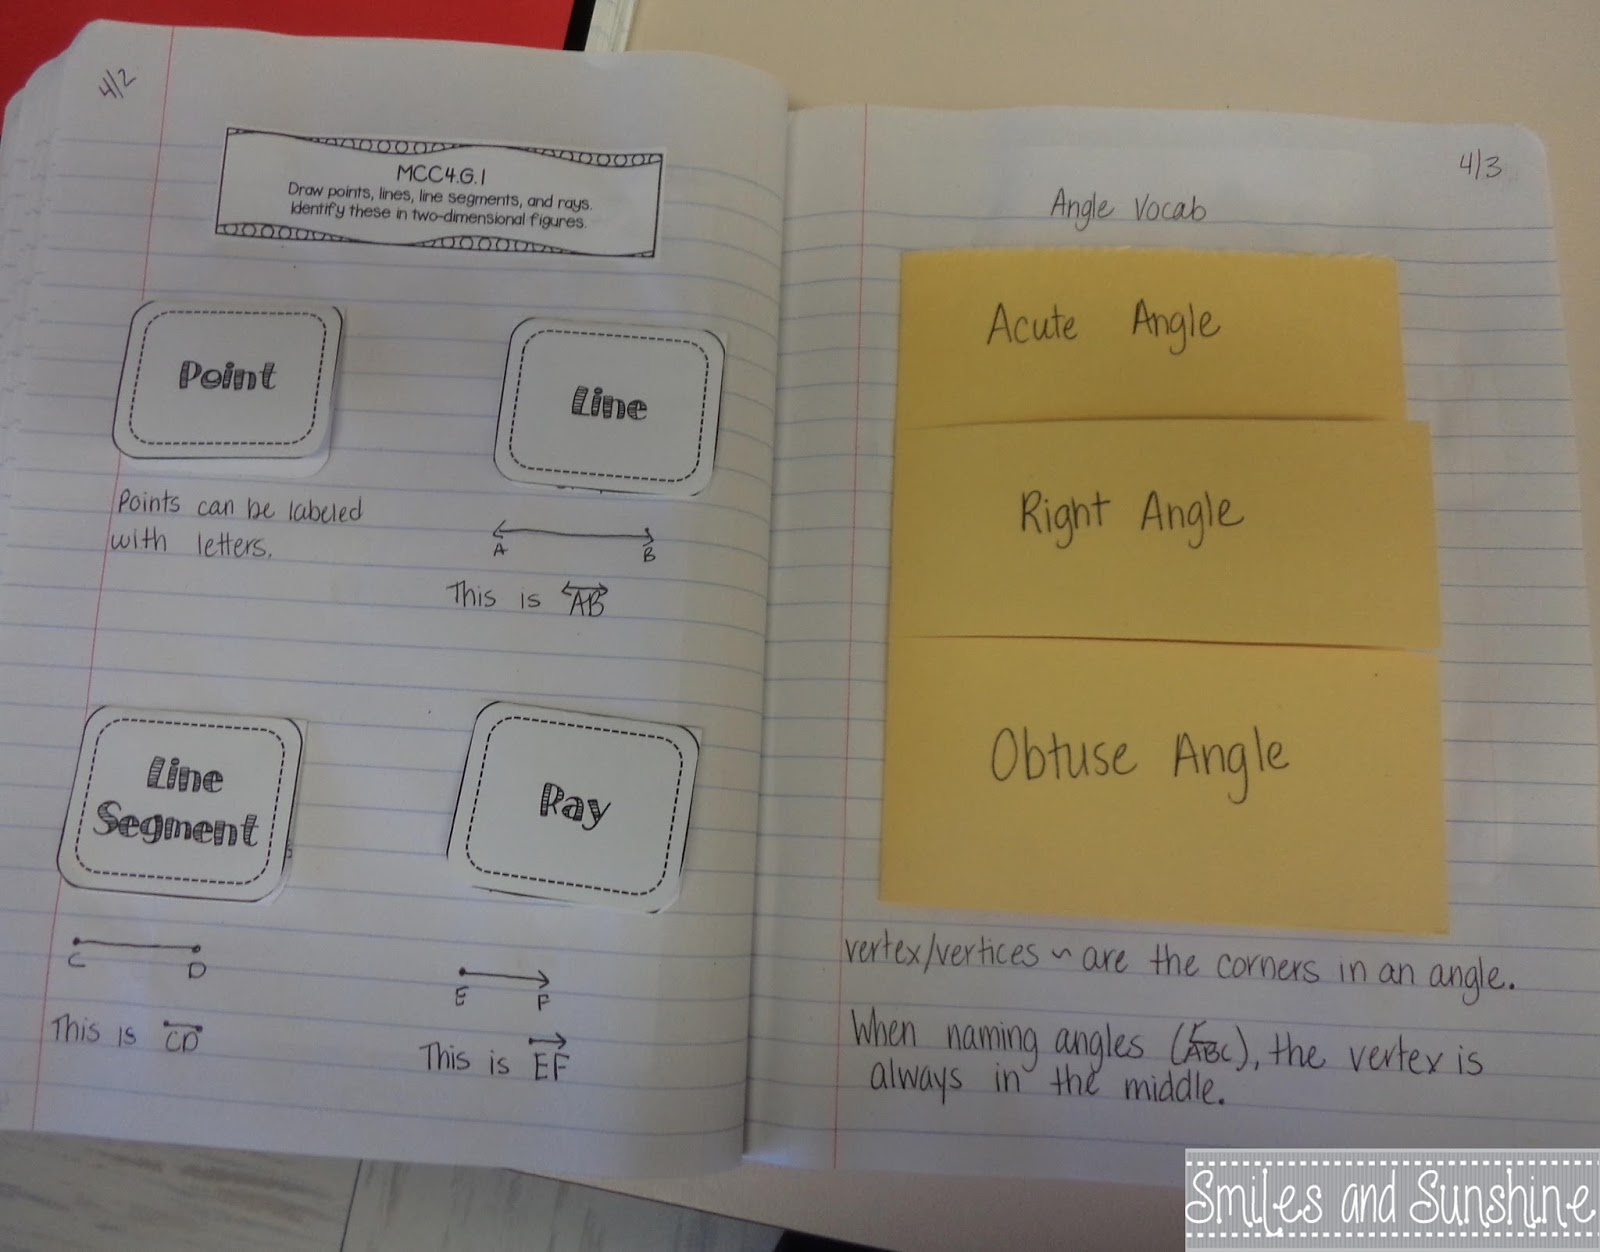 4/2
MCC4.G.1
Draw points, lines, line segments, and rays.
Identify these in two-dimensional figures.
Point
Points can be labeled
with letters.
Line
A B
This is AB
Line
Segment
C D
This is CD
Ray
E F
This is EF
4/3
Angle Vocab
Acute Angle
Right Angle
Obtuse Angle
vertex/vertices ~ are the corners in an angle.
When naming angles (ABC), the vertex is
always in the middle.
Smiles and Sunshine